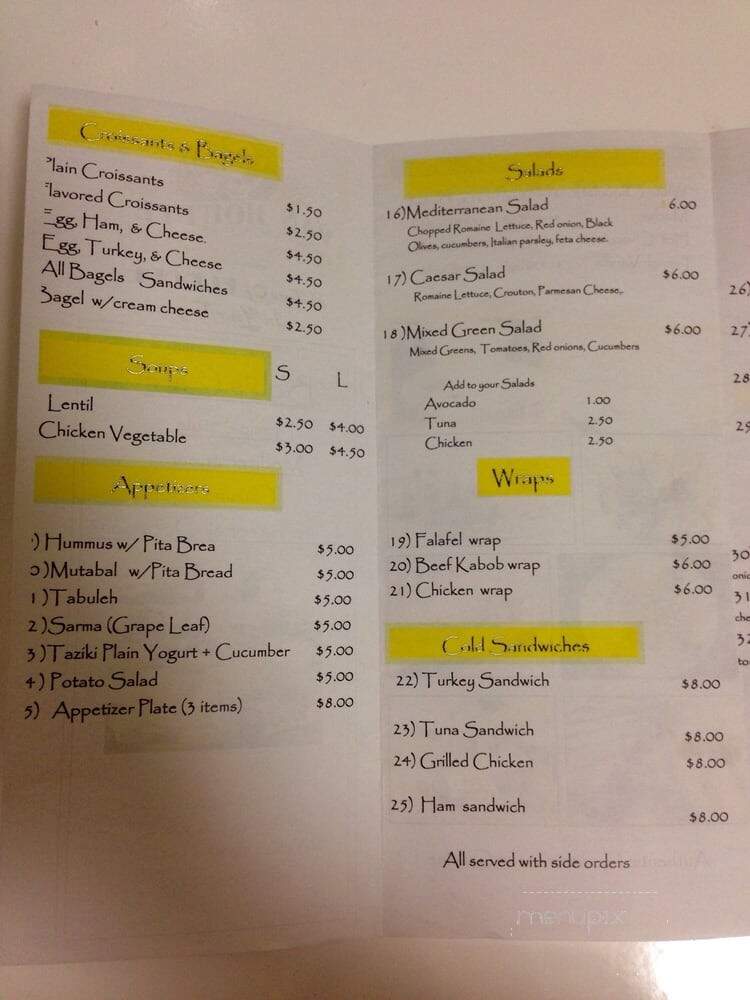 Croissants & Bagels
lain Croissants $1.50
lavored Croissants $2.50
gg, Ham, & Cheese. $4.50
Egg, Turkey, & Cheese $4.50
All Bagels Sandwiches $4.50
Bagel w/cream cheese $2.50
Soups S L
Lentil $2.50 $4.00
Chicken Vegetable $3.00 $4.50
Appetizers
) Hummus w/ Pita Brea $5.00
0)Mutabal w/Pita Bread $5.00
1)Tabuleh $5.00
2)Sarma (Grape Leaf) $5.00
3)Taziki Plain Yogurt + Cucumber $5.00
4) Potato Salad $5.00
5) Appetizer Plate (3 items) $8.00
Salads
16)Mediterranean Salad 6.00
Chopped Romaine Lettuce, Red onion, Black
Olives, cucumbers, Italian parsley, feta cheese.
17) Caesar Salad $6.00
Romaine Lettuce, Crouton, Parmesan Cheese,.
18)Mixed Green Salad $6.00
Mixed Greens, Tomatoes, Red onions, Cucumbers
Add to your Salads
Avocado 1.00
Tuna 2.50
Chicken 2.50
Wraps
19) Falafel wrap $5.00
20) Beef Kabob wrap $6.00
21) Chicken wrap $6.00
Cold Sandwiches
22) Turkey Sandwich $8.00
23) Tuna Sandwich $8.00
24) Grilled Chicken $8.00
25) Ham sandwich $8.00
All served with side orders
26)
27)
28
29
30
onio
31
che
32
to
menupix